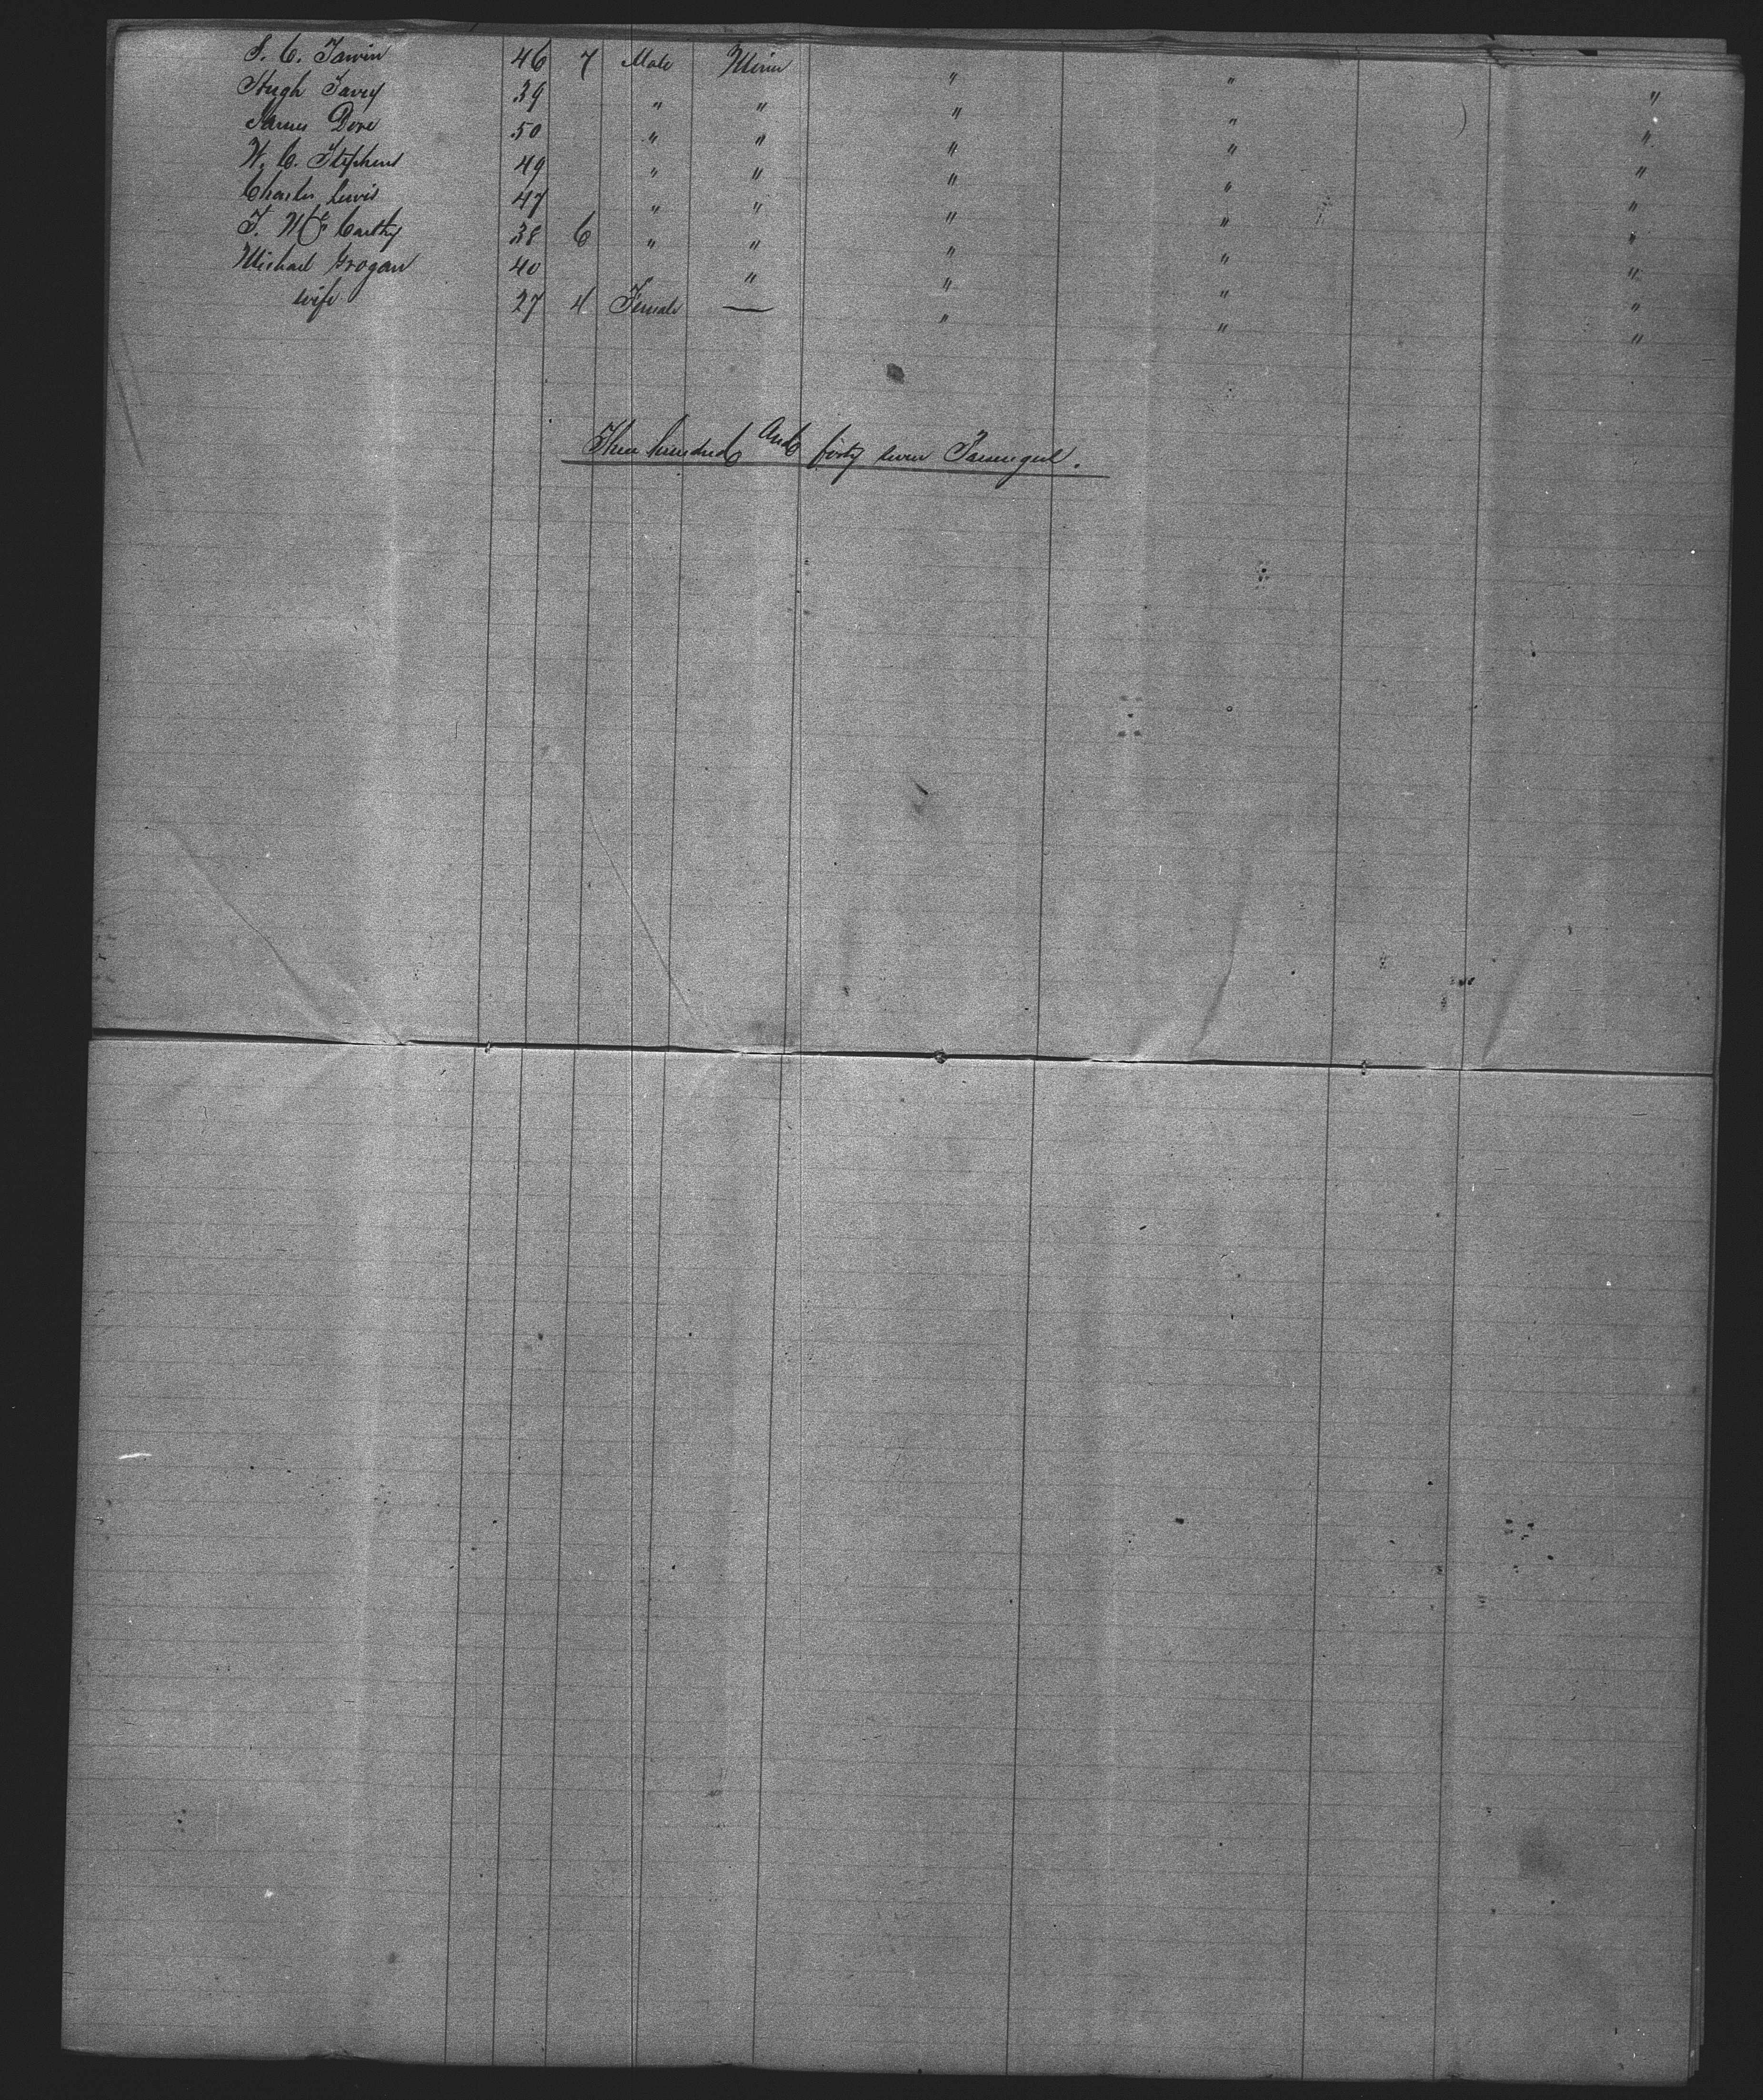 S. C. 46 7 Male Miner " " "
Hugh 39 " " " " "
James Dove 50 " " " " "
W. C. Stephens 49 " " " " "
Charles Lewis 47 " " " " "
T. McCarthy 38 6 " " " " "
Michael Grogan 40 " " " "
wife 27 4 Female — " " "
Three hundred and forty seven Passengers.